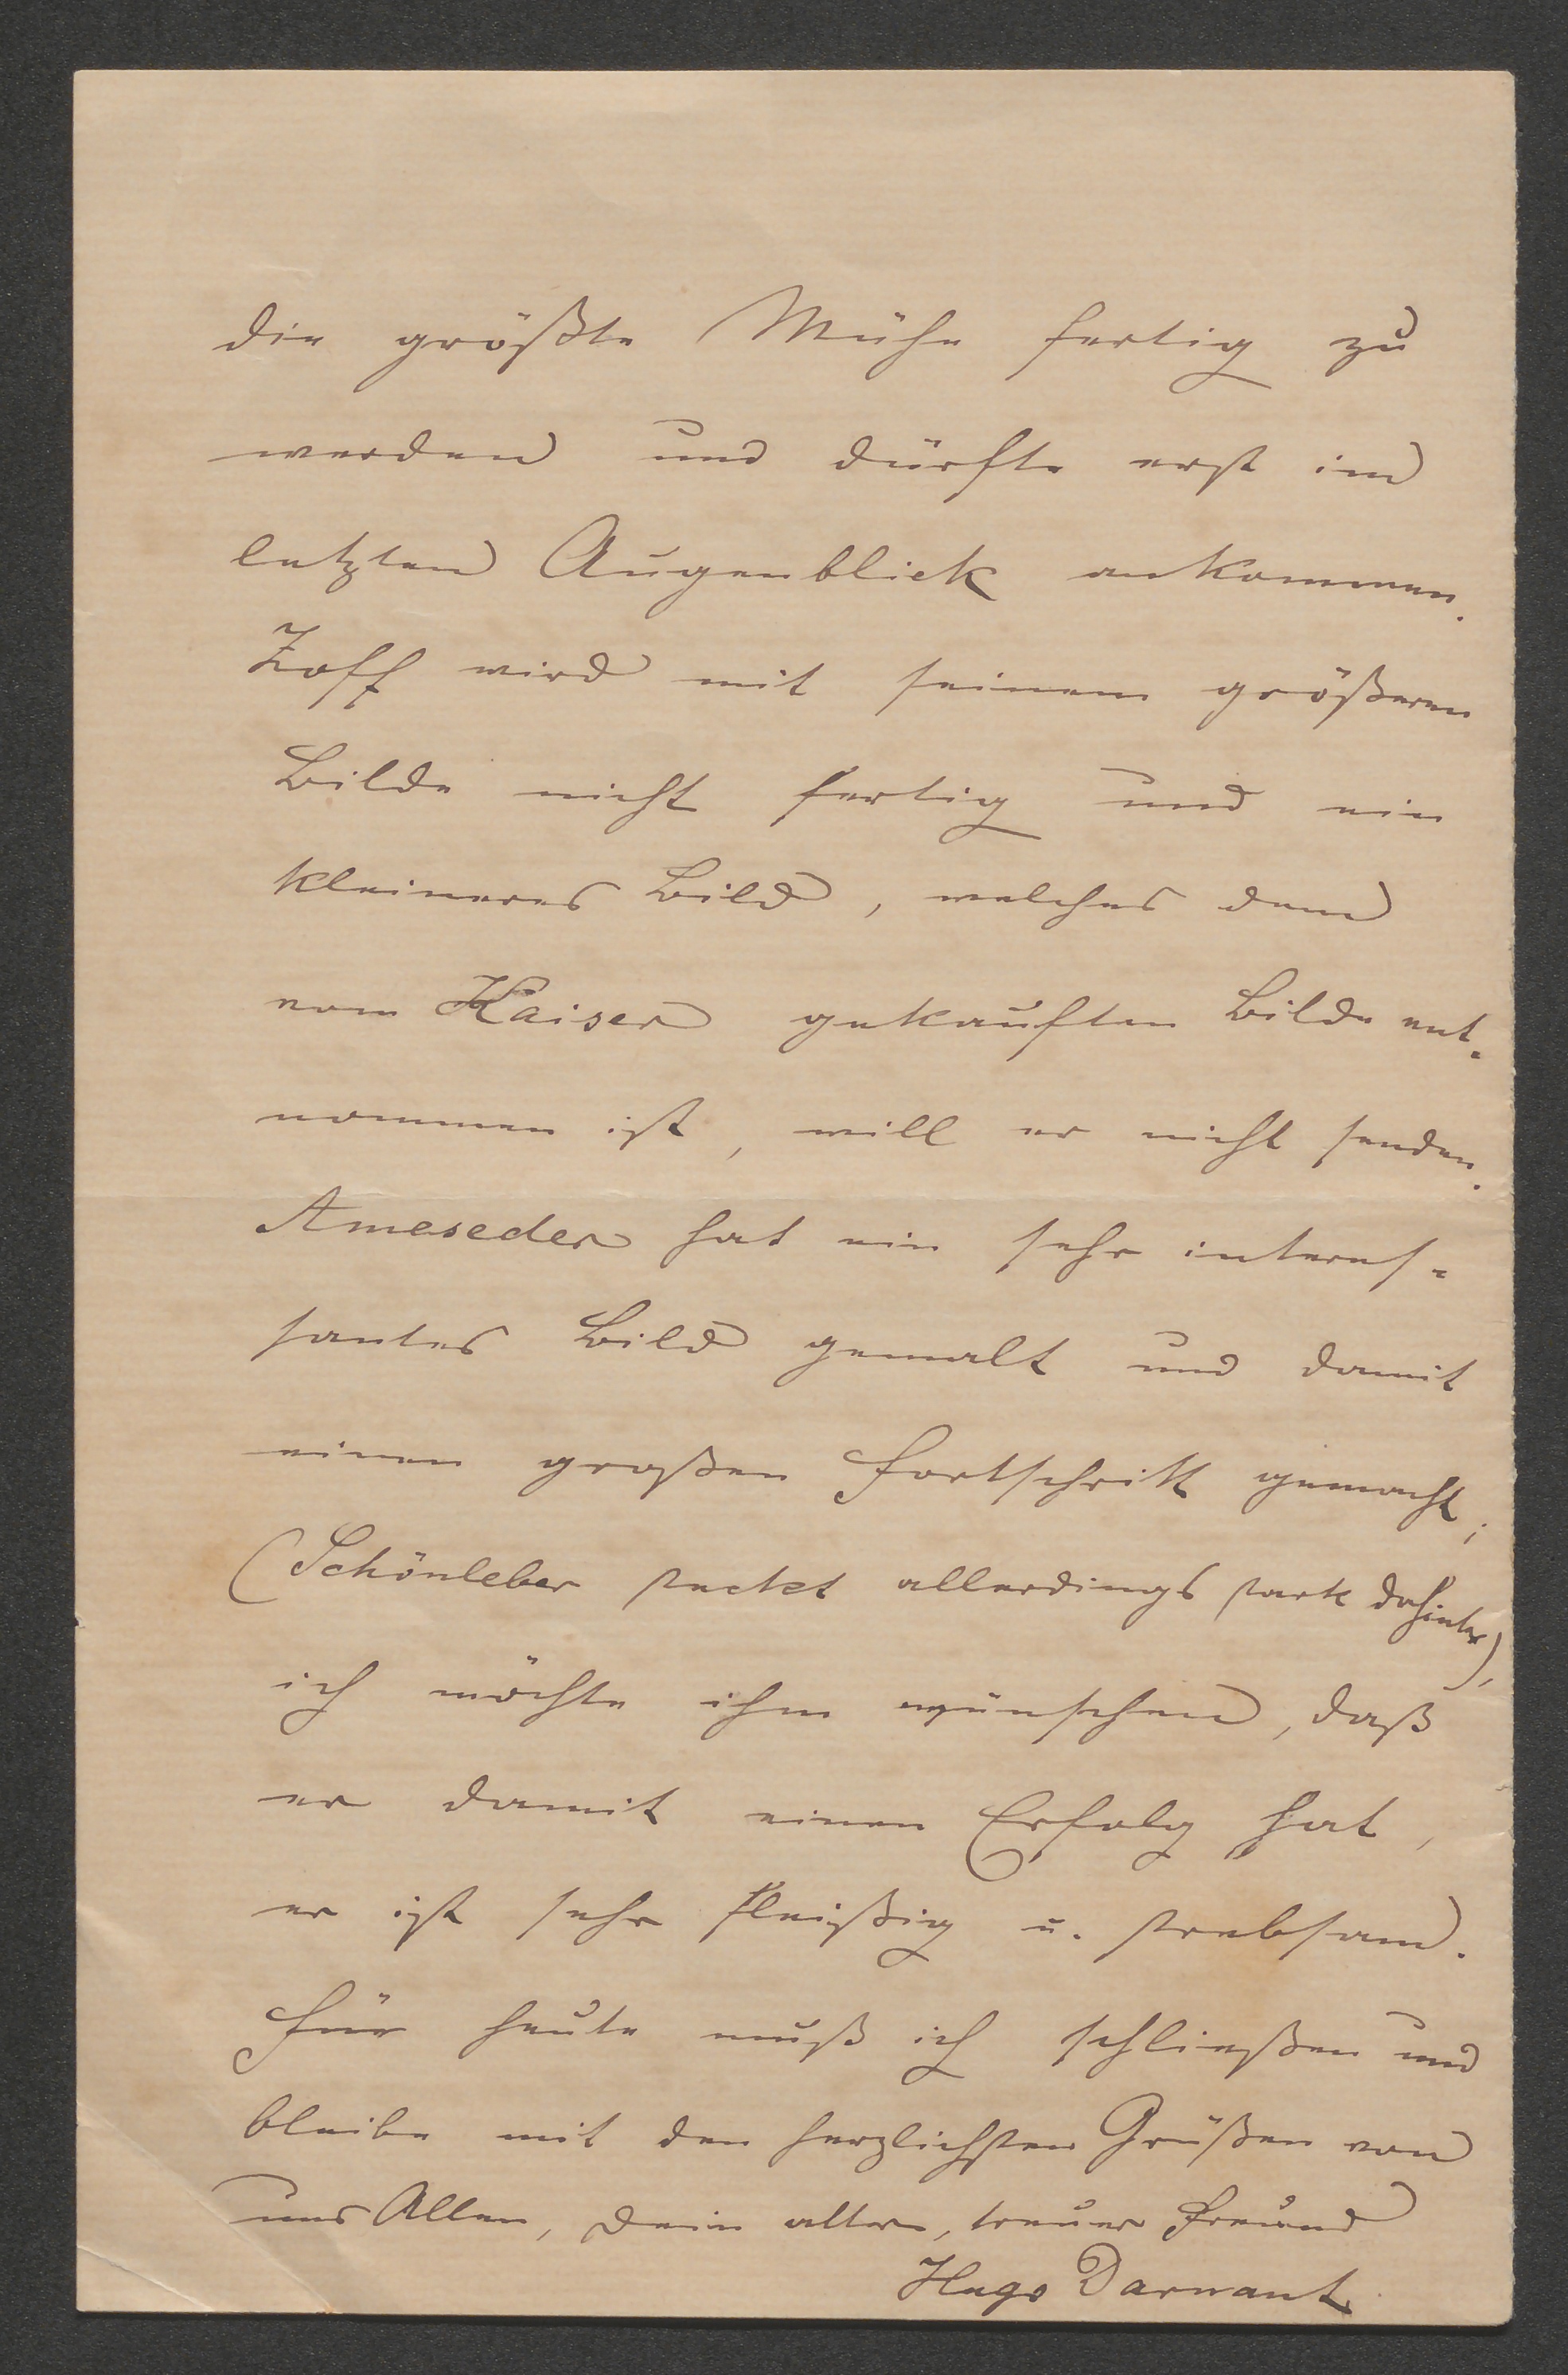 die größte Mühe fertig zu
werden und dürfte erst im
letzten Augenblick ankommen.
Zoff wird mit seinem größeren
Bilde nicht fertig und ein
kleineres Bild, welches dem
vom Kaiser gekauften Bilde ent-
nommen ist, will er nicht senden.
Ameseder hat ein sehr interes-
santes Bild gemalt und damit
einen großen Fortschritt gemacht,
(Schönleber steckt allerdings stark dahinter),
ich möchte ihm wünschen, daß
er damit einen Erfolg hat,
er ist sehr fleißig u. strebsam.
Für heute muß ich schließen und
bleibe mit den herzlichsten Grüßen von
uns Allen, Dein alter, treuer Freund
Hugo Darnaut